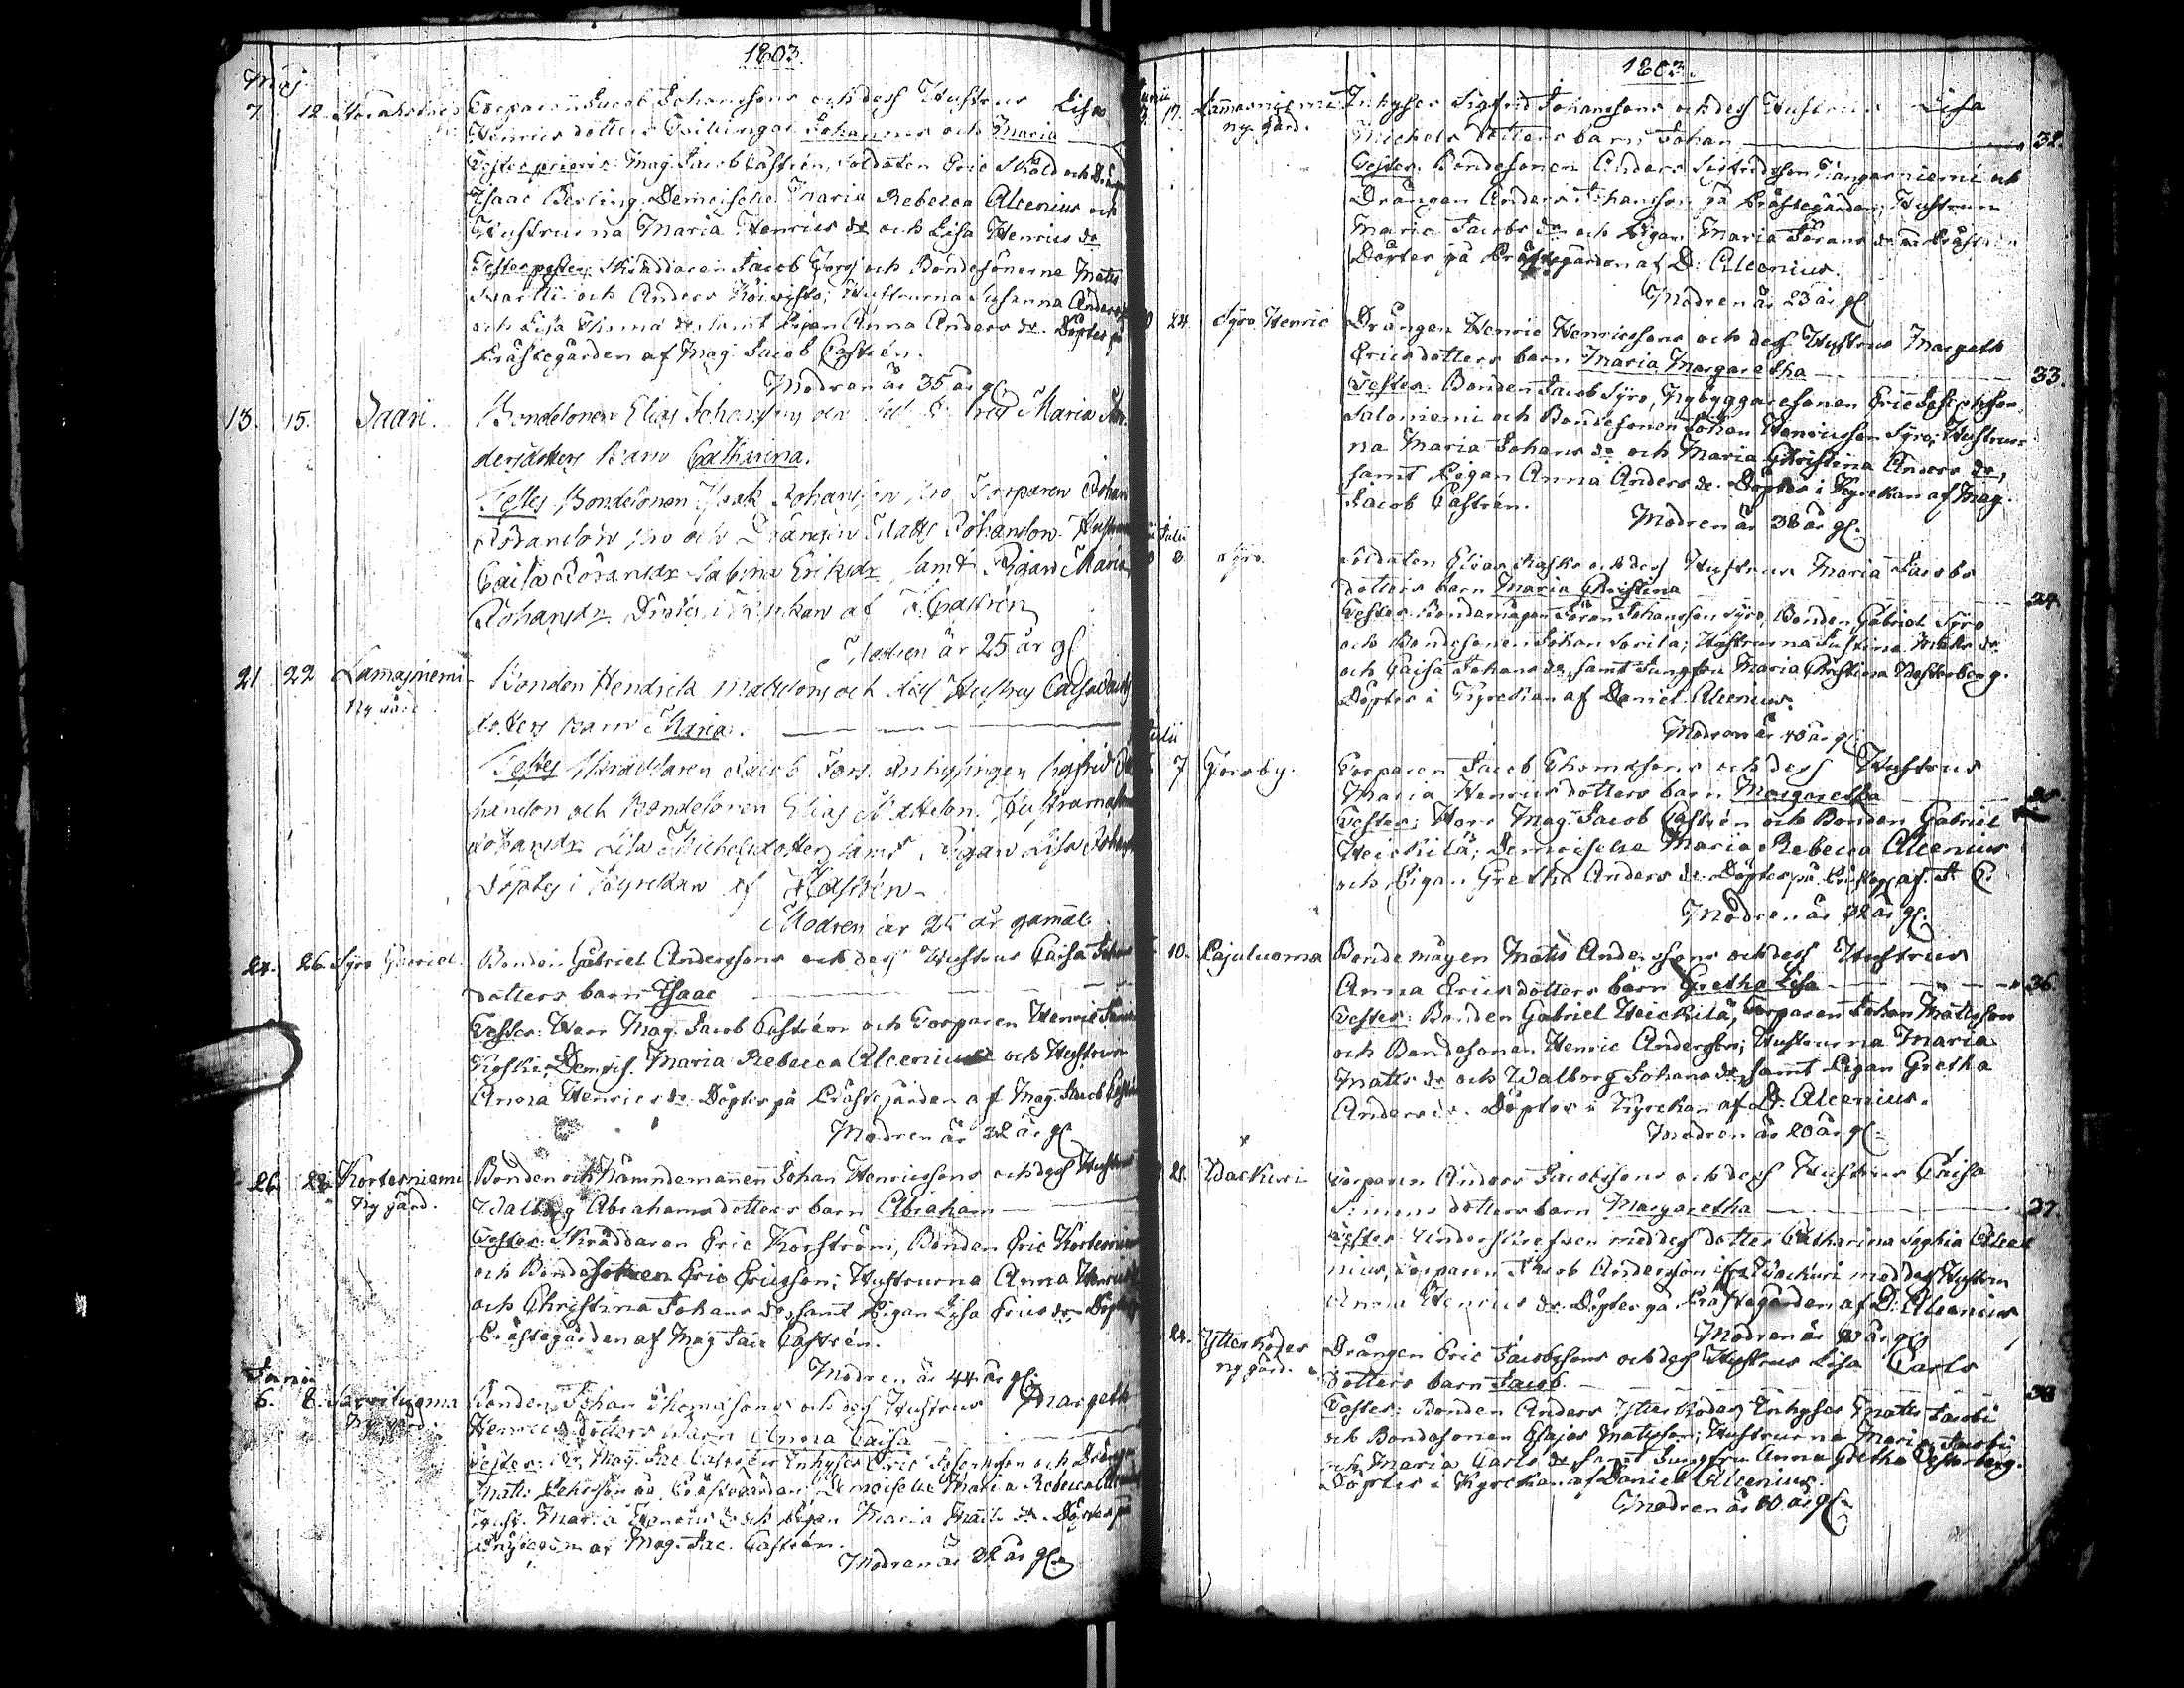 1803.
Maj
7. 12. Torparen Jacob Johanssons och dess Hustrus Lisa
Henricsdotters Tvillingar Johannes och Maria
Testes prioris: Mag. Jacob Castrén, Soldaten Eric Sköld och
Isaac Berling, Demoiselle Maria Rebecca Alcenius och
Hustrurna Maria Henrics dr och Lisa Henrics dr
Testes poster: Skräddaren Jacob Fors och Bondesönerne Matts
och Anders Koivisto; Hustrurna Susanna Anders
och Lisa Thomæ dr samt Pigan Anna Anders dr. Döptes på
Prästegården af Mag. Jacob Castrén.
Modren är 35 år gl
13. 15. Saari. Bondesonen Elias Johanssons och Maria An-
dersdotters Barn Catharina.
Testes Bondesonen Isaak Johansson Torparen Johan
och Drängen Matts Johansson. Hustrurna
Caisa Johansdr Sabina Eriksdr samt Pigan Maria
Johansdr. Döptes i Kyrckan af J. Castrén
Modren är 25 år gl
21 22 Lamasniemi Bonden Hendrick Matssons och dess Hustrus Caisa
Ny gård
dotters barn Maria.
Testes Skräddaren Jacob Fors Inhysingen Sigfrid Jo
hansson och Bondesonen Elias Mattsson. Hustrurna
Johansdr Lisa Michelsdotter samt Pigan Lisa Johans
Döptes i Kyrckan af J Castrén
Modren är 25 år gamal
24. 26. Syro Gabriel. Bonden Gabriel Anderssons och dess Hustrus Caisa Johans
dotters barn Isaac
Testes: Herr Mag. Jacob Castrén och Torparen Henric
Koski; Demois. Maria Rebecca Alcenius och Hustrun
Anna Henrics dr. Döptes på Prästegården af Mag. Jacob Castrén
Modren är 32 år gl
26. 28. Kortesniemi Bonden och Nämndemannen Johan Henricssons och dess Hustrus
Ny gård.
Walborg Abrahamsdotters barn Abraham
Testes: Skräddaren Eric Korström, Bonden Eric Kortesniemi
och Bondesonen Eric Ericsson; Hustrurna Anna Henrics
och Christina Johans dr, samt Pigan Lisa Erics dr. Döptes
Prästegården af Mag Jac Castrén.
Modren är 44 år gl.
Junii
6. 8. Bonden Johan Thomassons och dess Hustrus Margeth
Ny gård
Henricsdotters barn Anna Caisa
Testes: Hr. Mag. Jac. Castrén Inhyses Eric Josephsson och Drängen
Matts Johansson på Prästegården; Demoiselle Maria Rebecca Alcenius
Maria Henrics dr och Pigan Maria Matts dr. Döptes på
af Mag. Jac. Castrén.
Modren är 32 år gl.
1803.
Junii
17. Lamasniemi Inhyses Sigfrid Johanssons och dess Hustrus Lisa
ny gård.
Michelsdotters barn Johan 32.
Testes: Bondesonen Anders Sigfridsson Kangasniemi och
Drängen Anders Johansson på Prästegården, Hustrun
Maria Jacobs dr och Pigan Maria Görans dr på
Döptes på Prästegården af D. Alcenius.
Modren är 23 år gl
24. Syro Henric Drängen Henric Henricssons och dess Hustrus Margeth
Ericsdotters barn Maria Margaretha 33.
Testes: Bonden Jacob Syro, Nybyggaresonen Eric Josephsson
Saloniemi och Bondesonen Johan Henricsson Syro; Hustrur
na Maria Johans dr och Maria Christina Anders dr,
samt Pigan Anna Anders dr. Döptes i Kyrckan af Mag.
Jacob Castrén.
Modren är 38 år gl.
Julii
8. Syro. Soldaten Elias Rask och dess Hustrus Maria Jacobs
dotters barn Maria Christina 34.
Testes: Bondemågen Göran Johansson Syro, Bonden Gabriel Syro
och Bondesonen Johan Sorila; Hustrurna Justina Matts dr
och Caisa Johans dr, samt Jungfru Maria Christina Westerberg.
Döptes i Kyrckan af Daniel Alcenius.
Modren är 40 år gl.
Julii
7 Forsby. Torparen Jacob Thomassons och dess Hustrus
Maria Henricsdotters barn Margaretha 35.
Testes: Herr Mag. Jacob Castrén och Bonden Gabriel
Heickilä; Demoiselle Maria Rebecca Alcenius
och Pigan Gretha Anders dr. Döptes på Prästeg af J. C.
Modren är 32 år gl.
10. Pajuluoma Bondemågen Matts Anderssons och dess Hustrus
Anna Ericsdotters barn Gretha Lisa 36.
Testes: Bonden Gabriel Heickilä, Torparen Johan Mattsson
och Bondesonen Henric Andersson; Hustrurna Maria
Matts dr och Walborg Johans dr, samt Pigan Gretha
Anders dr. Döptes i Kyrckan af D. Alcenius.
Modren är 20 år gl.
21. Wackuri Torparen Anders Jacobssons och dess Hustrus Caisa
Simonsdotters barn Margaretha 37.
Testes: Underskrefven med dess dotter Catharina Sophia Alce
nius, Torparen Jacob Andersson Wackuri med dess Hustru
Anna Henrics dr. Döptes på Prästegården af D. Alcenius
Modren är 30 år gl
24. Ytter Röder Drängen Eric Jacobssons och dess Hustrus Lisa Carls
ny gård.
dotters barn Jacob 38
Testes: Bonden Anders Ytter Röder, Inhyses Matts Jacobs
och Bondesonen Esajas Mattsson; Hustrurna Maria Jacobs
och Maria Carls dr samt Jungfru Anna Gretha Westerberg.
Döptes i Kyrckan af Daniel Alcenius
Modren är 30 år gl.